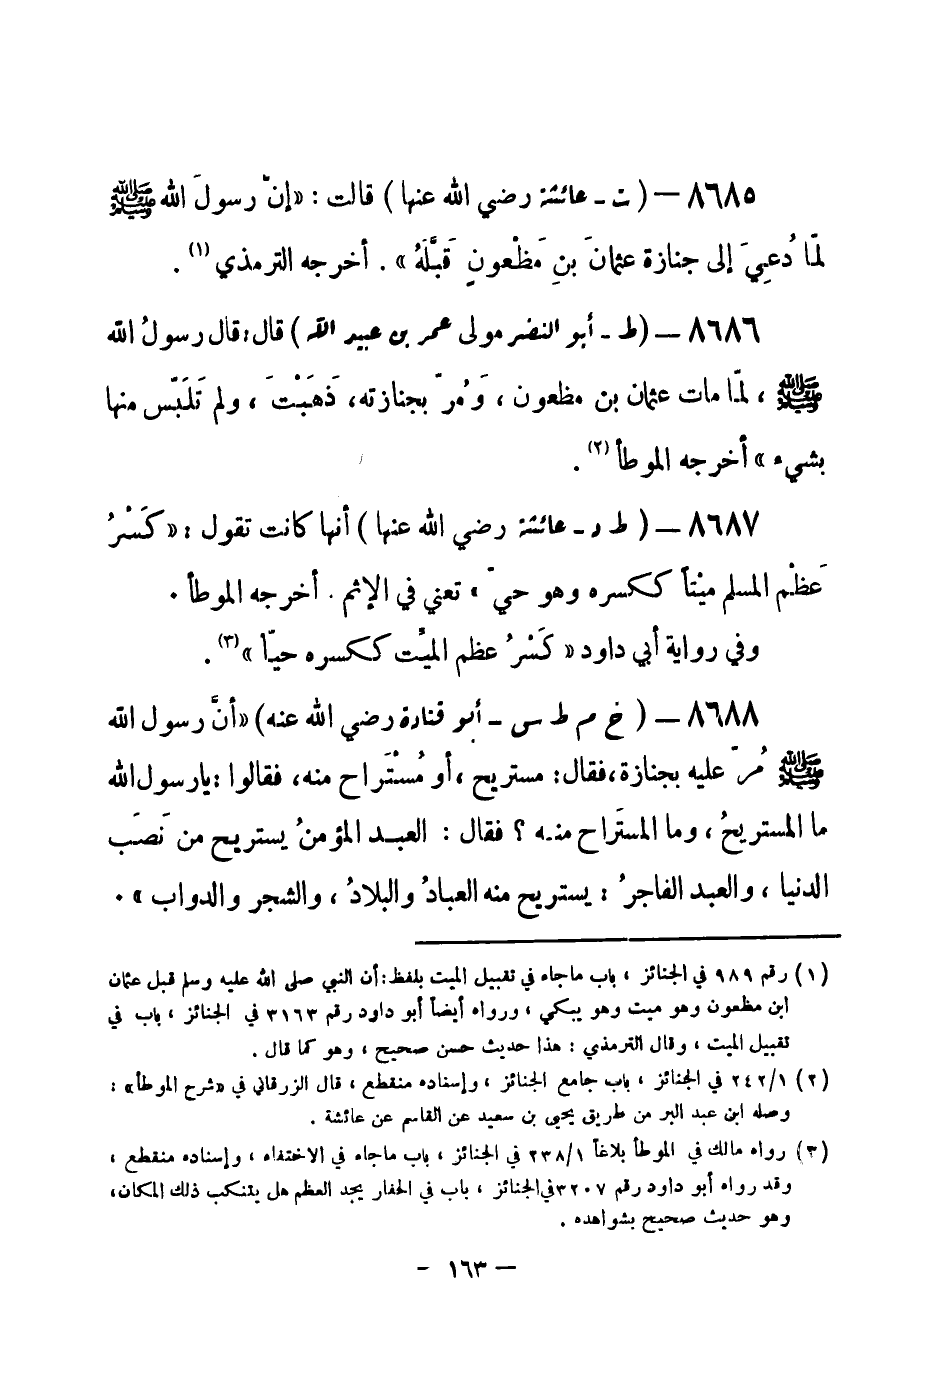 ٨٦٨٥ — ( ت ـ عائشة رضي الله عنها ) قالت : «إنّ رسولَ الله ﷺ
لمّا دُعِيَ إلى جنازة عثمانَ بنِ مَظْعونٍ قَبَّلَهُ » . أخرجه الترمذي (١) .
٨٦٨٦ — (ط ـ أبو النضر مولى عمر بن عبيد الله ) قال : قال رسولُ الله
ﷺ ، لمّا مات عثمان بن مظعون ، وَمُرّ بجنازته، ذَهَبْتَ ، ولم تَلَبّس منها
بشيء » أخرجه الموطأ (٢) .
٨٦٨٧ — ( ط د ـ عائشة رضي الله عنها ) أنها كانت تقول : « كَسْرُ
عَظْم المسلم ميْتاً ككسره وهو حيّ » تعني في الإثم . أخرجه الموطأ .
وفي رواية أبي داود « كَسْرُ عظم الميِّت ككسره حيّا »(٣) .
٨٦٨٨ — ( خ م ط س ـ أبو قتادة رضي الله عنه) «أنَّ رسول الله
ﷺ مُرّ عليه بجنازة، فقال: مستريح ، أو مُسْتَراح منه، فقالوا : يارسول الله
ما المستريحُ ، وما المستَراح منه ؟ فقال : العبد المؤمنُ يستريح من نَصَب
الدنيا ، والعبد الفاجرُ : يستريح منه العبادُ والبلادُ ، والشجر والدواب » .
(١) رقم ٩٨٩ في الجنائز ، باب ماجاء في تقبيل الميت بلفظ: أن النبي صلى الله عليه وسلم قبل عثمان
ابن مظعون وهو ميت وهو يبكي ، ورواه أيضاً أبو داود رقم ٣١٦٣ في الجنائز ، باب في
تقبيل الميت ، وقال الترمذي : هذا حديث حسن صحيح ، وهو كما قال .
(٢) ٢٤٢/١ في الجنائز ، باب جامع الجنائز ، وإسناده منقطع ، قال الزرقاني في «شرح الموطأ» :
وصله ابن عبد البر من طريق يحيى بن سعيد عن القاسم عن عائشة .
(٣) رواه مالك في الموطأ بلاغاً ٢٣٨/١ في الجنائز ، باب ماجاء في الاختفاء ، وإسناده منقطع ،
وقد رواه أبو داود رقم ٣٢٠٧ في الجنائز ، باب في الحفار يجد العظم هل يتنكب ذلك المكان،
وهو حديث صحيح بشواهده .
— ١٦٣ -